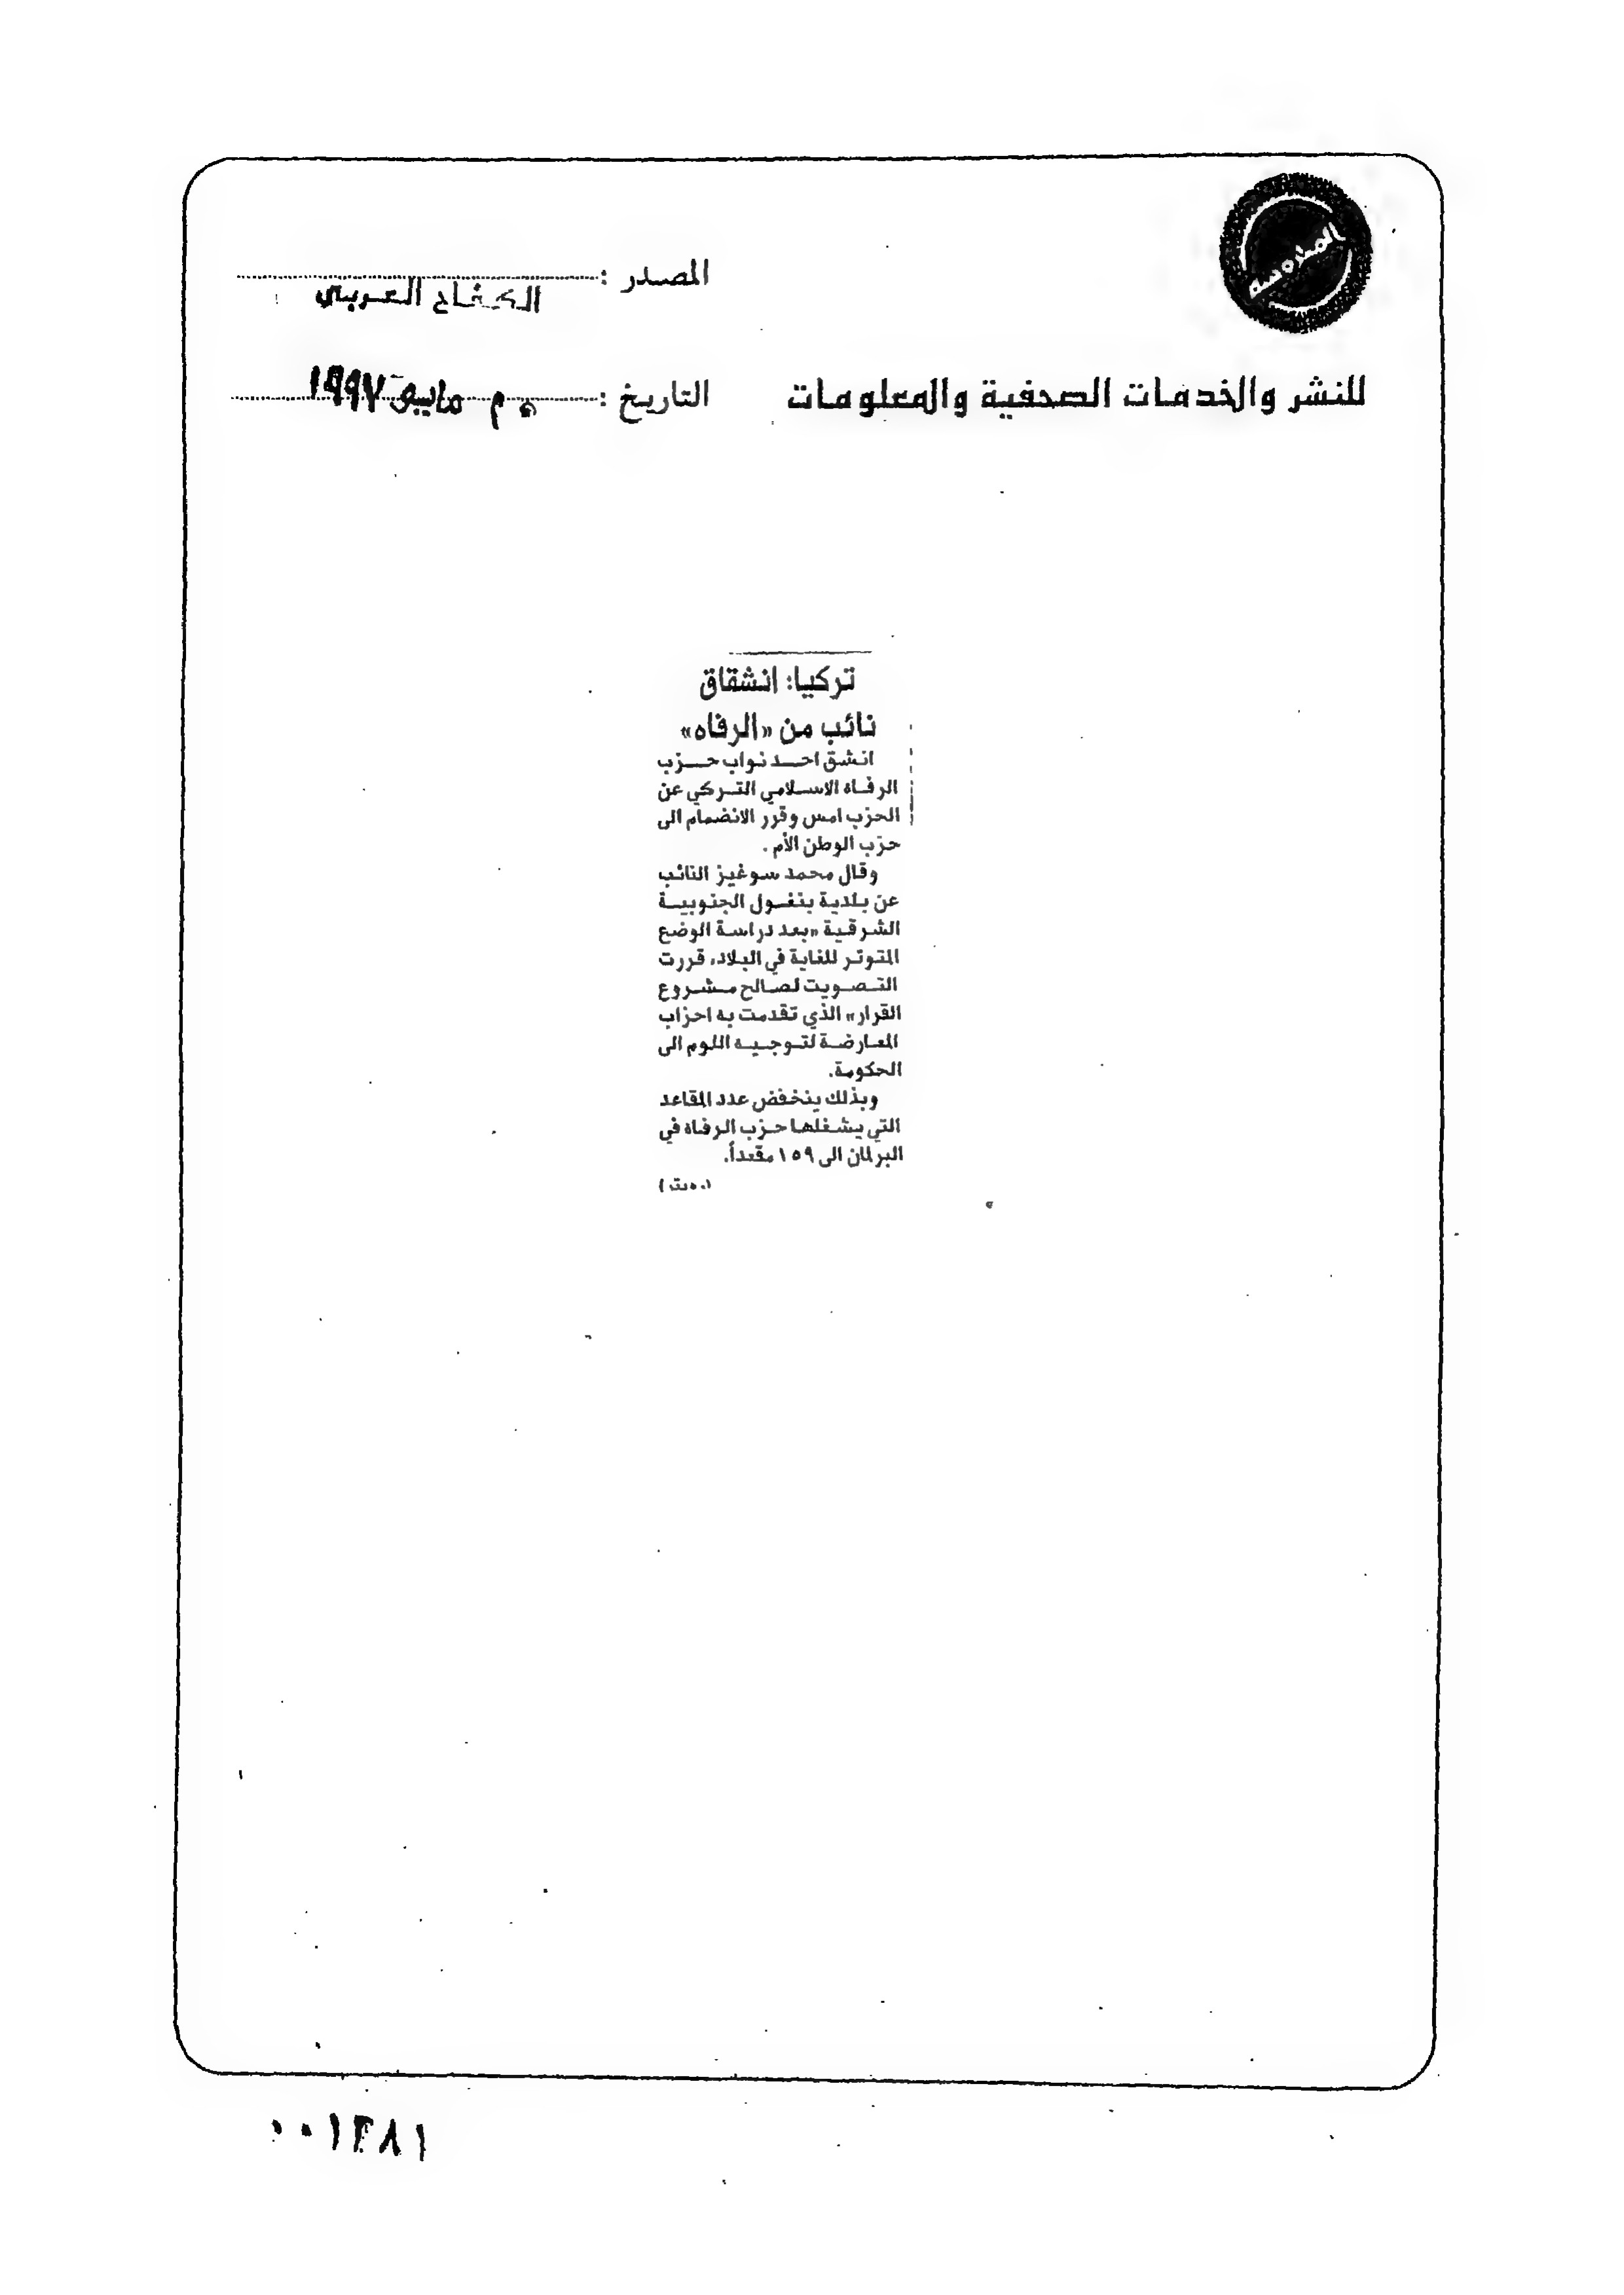 المصدر :
الكفاح العربي
للنشر والخدمات الصحفية والمعلومات
التاريخ : مايو ١٩٩٧
تركيا: انشقاق
نائب من «الرفاه»
انشق احد نواب حزب
الرفاه الاسلامي التركي عن
الحزب امس وقرر الانضمام الى
حزب الوطن الأم .
وقال محمد سوغيز النائب
عن بلدية بنغول الجنوبية
الشرقية «بعد دراسة الوضع
المتوتر للغاية في البلاد، قررت
التصويت لصالح مشروع
القرار» الذي تقدمت به احزاب
المعارضة لتوجيه اللوم الى
الحكومة.
وبذلك ينخفض عدد المقاعد
التي يشغلها حزب الرفاه في
البرلمان الى ١٥٩ مقعداً.